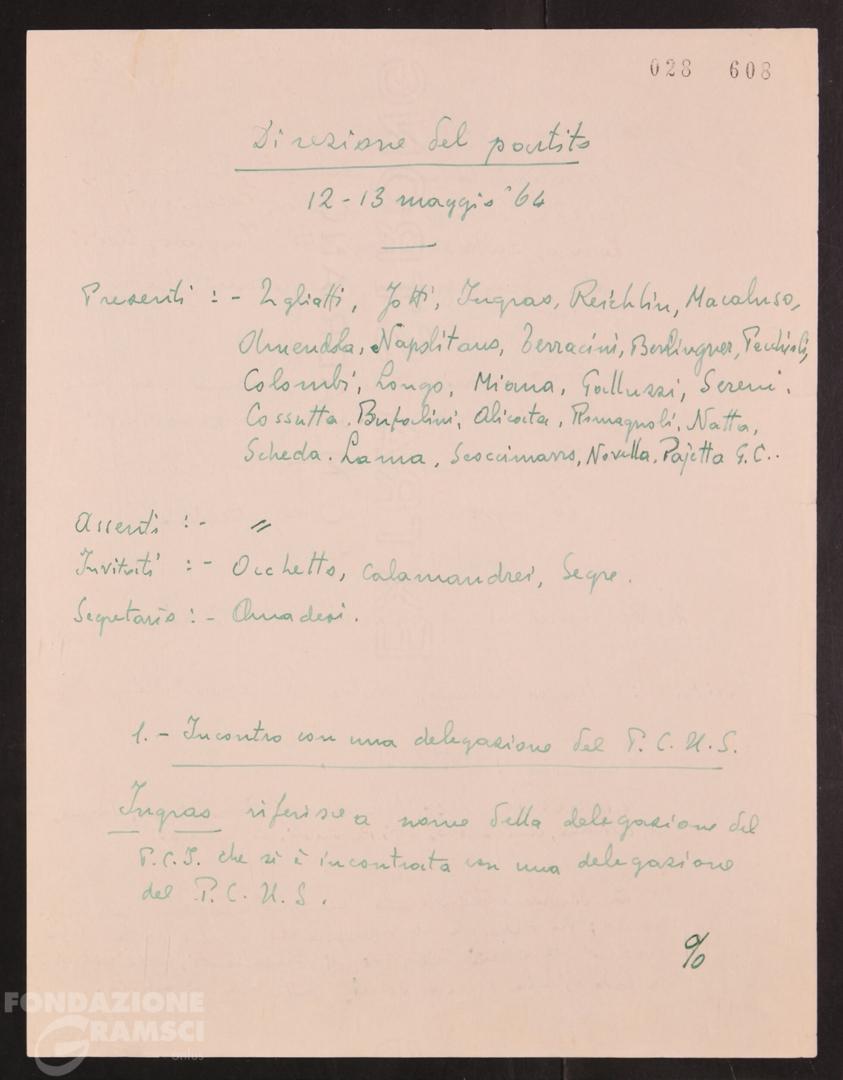 028 608
Direzione del partito
12-13 maggio '64
Presenti :- Togliatti, Jotti, Ingrao, Reichlin, Macaluso,
Amendola, Napolitano, Terracini, Berlinguer, Pecchioli,
Colombi, Longo, Miana, Galluzzi, Sereni.
Cossutta. Bufalini, Alicata, Romagnoli. Natta,
Scheda. Lama, Scoccimarro, Novella. Pajetta G.C..
Assenti :- "
Invitati :- Occhetto, Calamandrei, Segre.
Segretario :- Amadesi.
1.- Incontro con una delegazione del P.C.U.S.
Ingrao riferisce a nome della delegazione del
P.C.I. che si è incontrata con una delegazione
del P.C.U.S.
%
FONDAZIONE
GRAMSCI
onlus